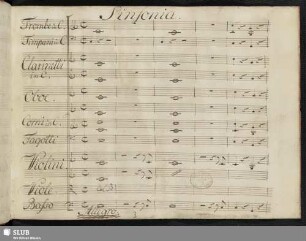 Sinfonia.
Trombe in C.
Timpani in C.
Clarinetti
in C.
Oboe
Corni in C.
Fagotti
Violini
Viole
Basso
Allegro
SLUB